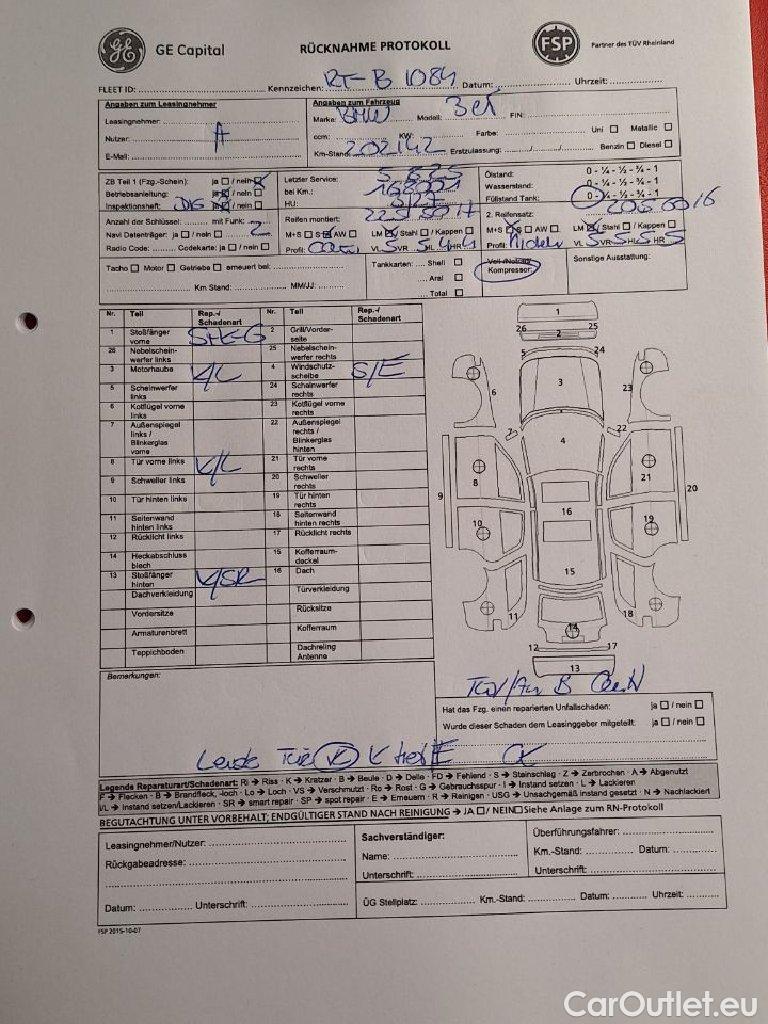 GE Capital
RÜCKNAHME PROTOKOLL
FSP
Partner des TÜV Rheinland
FLEET ID: Kennzeichen: RT-B 1084 Datum: Uhrzeit:
Angaben zum Leasingnehmer
Leasingnehmer:
Nutzer: A
E-Mail:
Angaben zum Fahrzeug
Marke: BMW Modell: 3er FIN:
ccm: KW: Farbe: Uni Metallic
Km-Stand: 202142 Erstzulassung: Benzin Diesel
ZB Teil 1 (Fzg.-Schein): ja / nein
Betriebsanleitung: ja / nein
Inspektionsheft: ja / nein
Anzahl der Schlüssel: mit Funk: 2
Navi Datenträger: ja / nein
Radio Code: Codekarte: ja / nein
Letzter Service:
bei Km.:
HU:
Ölstand: 0 - ¼ - ½ - ¾ - 1
Wasserstand: 0 - ¼ - ½ - ¾ - 1
Füllstand Tank: 0 - ¼ - ½ - ¾ - 1
Reifen montiert:
M+S S AW LM / Stahl / Kappen
Profil: VL 5 VR 5 HL 4 HR 4
2. Reifensatz:
M+S S AW LM Stahl / Kappen
Profil: VL 5 VR 5 HL 5 HR 5
Tacho Motor Getriebe erneuert bei:
Km Stand: MM/JJ:
Tankkarten: Shell
Aral
Total
Kompressor:
Sonstige Ausstattung:
Nr. Teil Rep.-/ Schadenart Nr. Teil Rep.-/ Schadenart
1 Stoßfänger vorne 2 Grill/Vorderseite
26 Nebelscheinwerfer links 25 Nebelscheinwerfer rechts
3 Motorhaube K/L 4 Windschutzscheibe S/E
5 Scheinwerfer links 24 Scheinwerfer rechts
6 Kotflügel vorne links 23 Kotflügel vorne rechts
7 Außenspiegel links / Blinkerglas vorne 22 Außenspiegel rechts / Blinkerglas hinten
8 Tür vorne links K/L 21 Tür vorne rechts
9 Schweller links 20 Schweller rechts
10 Tür hinten links 19 Tür hinten rechts
11 Seitenwand hinten links 18 Seitenwand hinten rechts
12 Rücklicht links 17 Rücklicht rechts
14 Heckabschluss blech 15 Kofferraumdeckel
13 Stoßfänger hinten K/SR 16 Dach
Dachverkleidung Türverkleidung
Vordersitze Rücksitze
Armaturenbrett Kofferraum
Teppichboden Dachreling Antenne
1
26 2 25
5 24
6 3 23
7 22
4
9 8 21 20
10 16 19
15
11 14 18
12 17
13
Bemerkungen:
Hat das Fzg. einen reparierten Unfallschaden: ja / nein
Wurde dieser Schaden dem Leasinggeber mitgeteilt: ja / nein
Legende Reparaturart/Schadenart: Ri → Riss · K → Kratzer · B → Beule · D → Delle · FD → Fehlend · S → Steinschlag · Z → Zerbrochen · A → Abgenutzt
F → Flecken · B → Brandfleck, -loch · Lo → Loch · VS → Verschmutzt · Ro → Rost · G → Gebrauchsspur · I → Instand setzen · L → Lackieren
I/L → Instand setzen/Lackieren · SR → smart repair · SP → spot repair · E → Erneuern · R → Reinigen · USG → Unsachgemäß instand gesetzt · N → Nachlackiert
BEGUTACHTUNG UNTER VORBEHALT; ENDGÜLTIGER STAND NACH REINIGUNG → JA / NEIN Siehe Anlage zum RN-Protokoll
Leasingnehmer/Nutzer:
Rückgabeadresse:
Datum: Unterschrift:
Sachverständiger:
Name:
Unterschrift:
Überführungsfahrer:
Km.-Stand: Datum:
Unterschrift:
ÜG Stellplatz: Km.-Stand: Datum: Uhrzeit:
FSP 2015-10-07
CarOutlet.eu